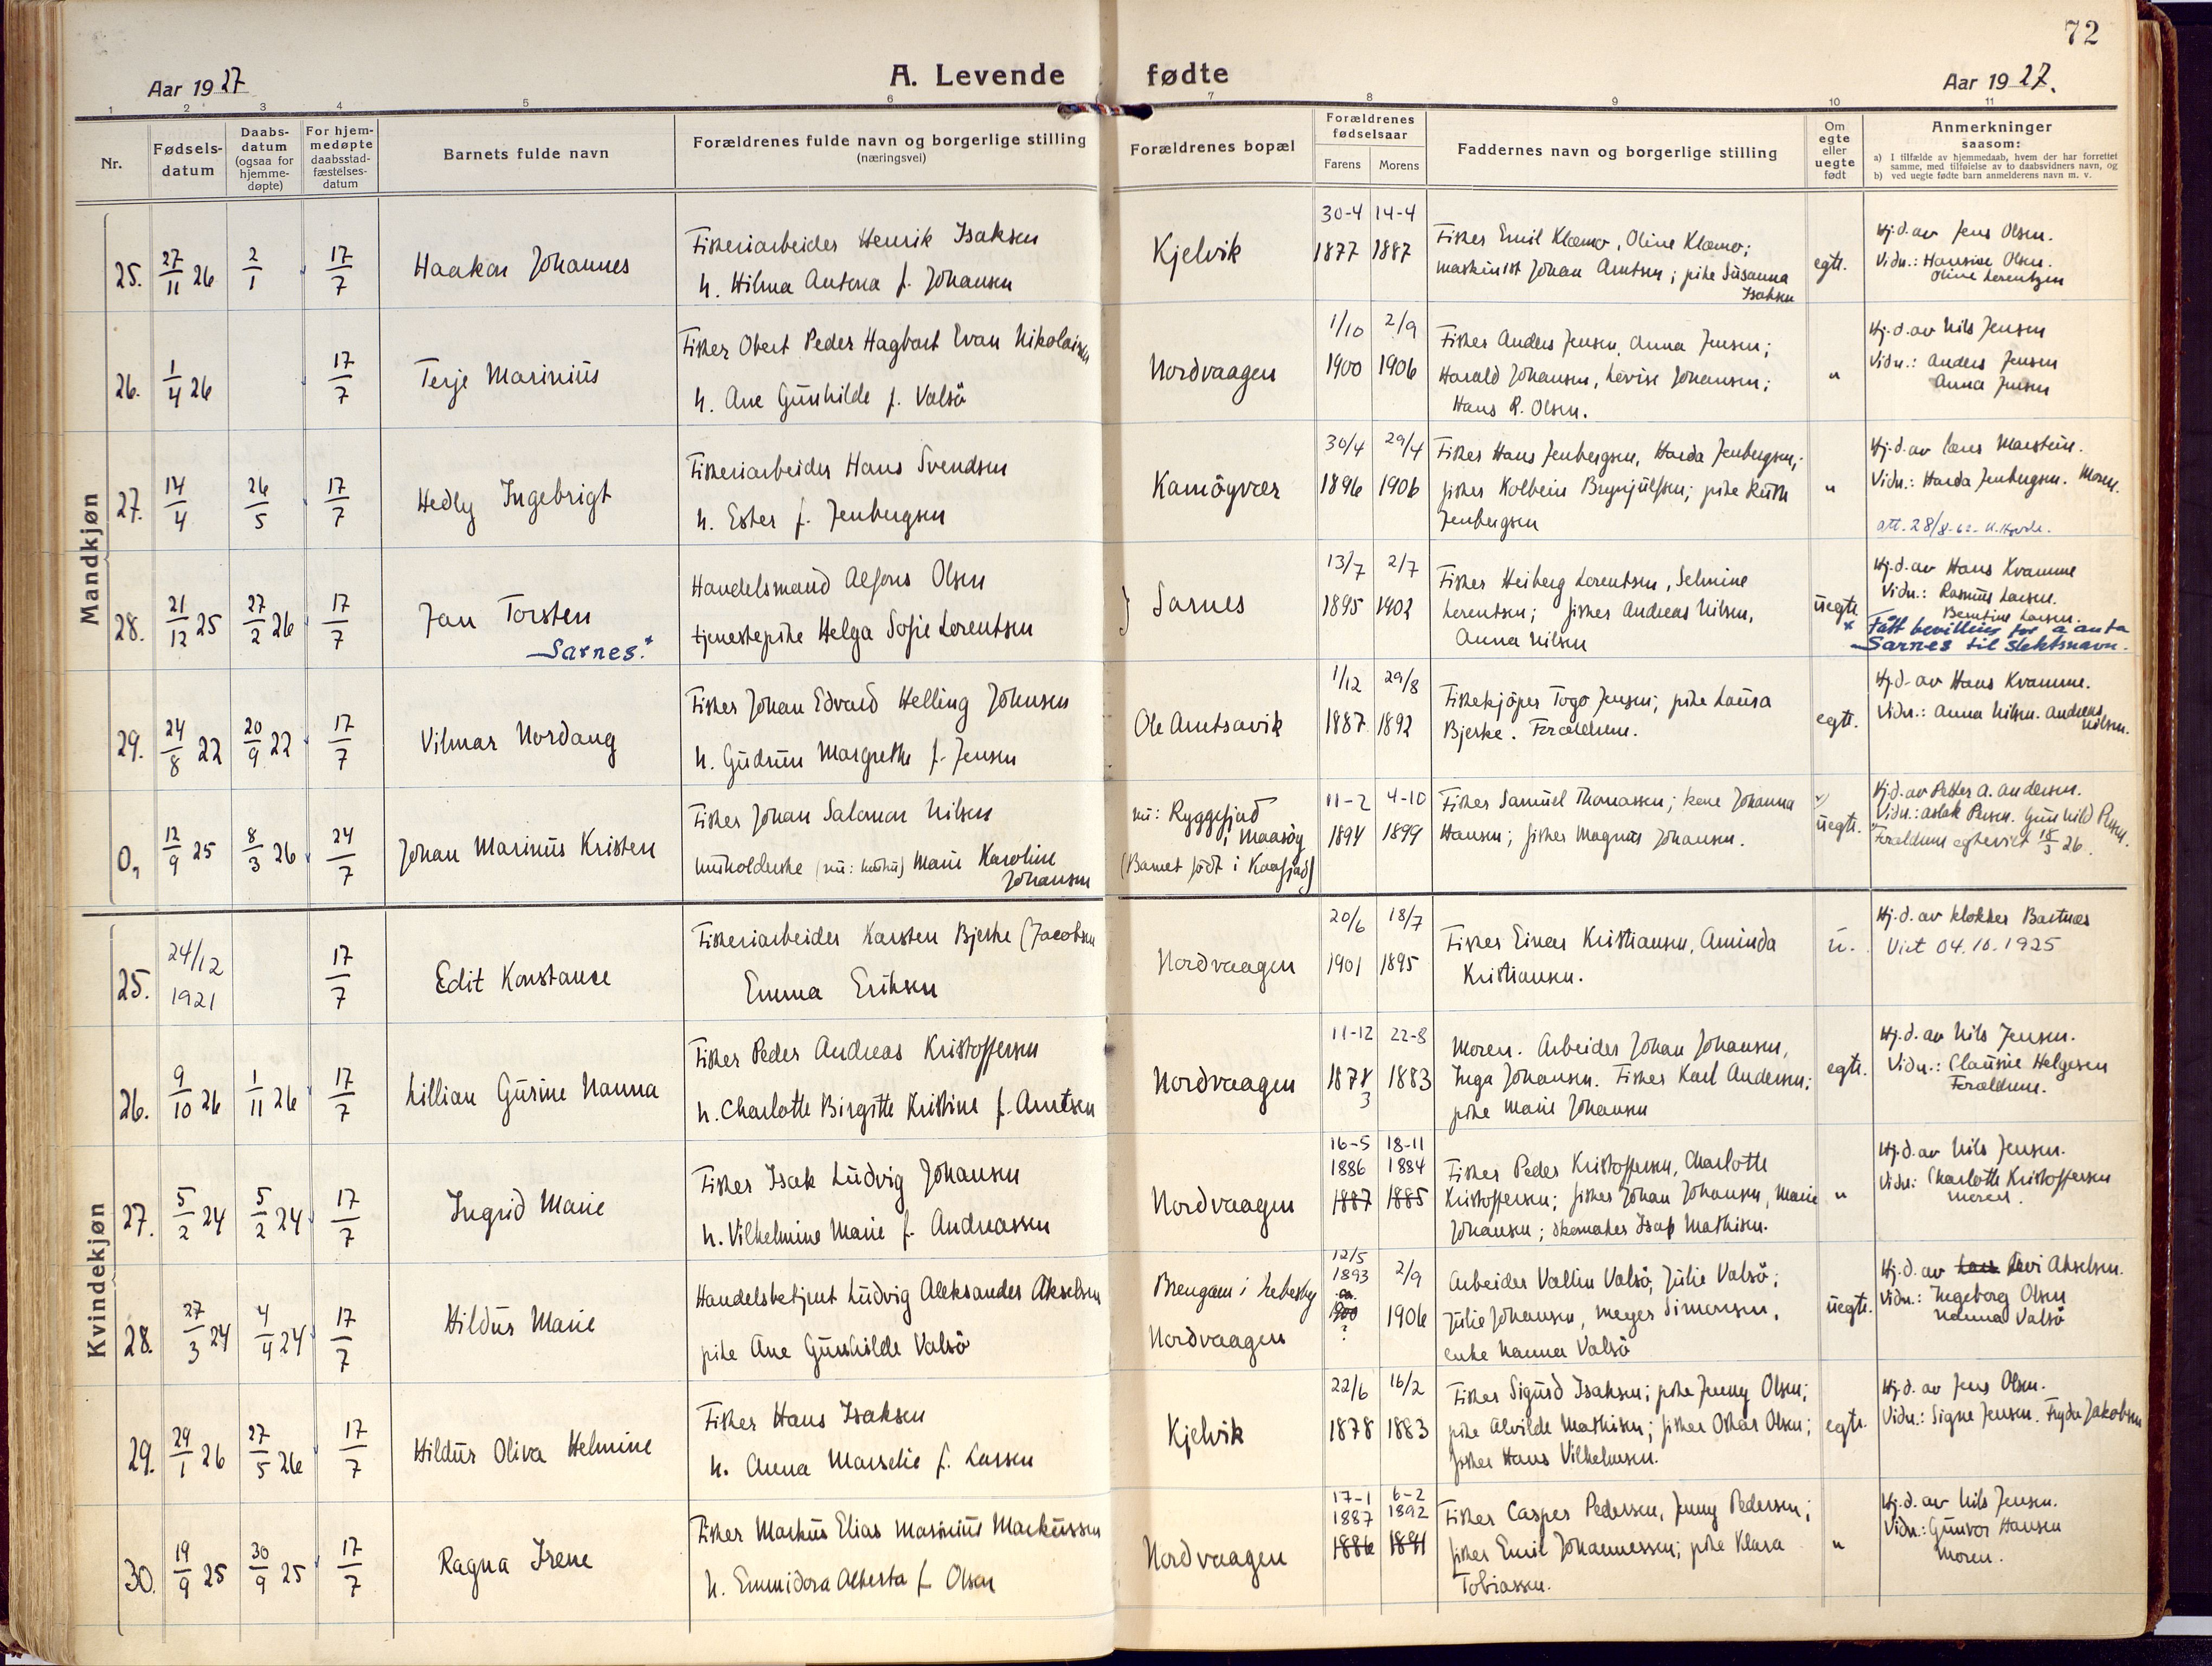 72
Aar 1927
A. Levende fødte
Aar 1927.
1 2 3 4 5 6 7 8 9 10 11
Nr.
Fødsels-
datum
Daabs-
datum
(ogsaa for
hjemme-
døpte)
For hjem-
medøpte
daabsstad-
fæstelses-
datum
Barnets fulde navn
Forældrenes fulde navn og borgerlige stilling
(næringsvei)
Forældrenes bopæl
Forældrenes
fødselsaar
Farens Morens
Faddernes navn og borgerlige stilling
Om
egte
eller
uegte
født
Anmerkninger
saasom:
a) I tilfælde av hjemmedaab, hvem der har forrettet
samme, med tilføielse av to daabsvidners navn, og
b) ved uegte fødte barn anmelderens navn m. v.
Mandkjøn
25. 27/11 26 2/1 17/7 Haakon Johannes
Fiskeriarbeider Henrik Isaksen
h. Hilma Antona f. Johansen
Kjelvik
30-4 14-4
1877 1887
Fisker Emil Klæmo, Oline Klæmo;
maskinist Johan Arntsen; pike Susanna
Isaksen
egte.
Hj.d. av Jens Olsen.
Vidn.: Hansine Olsen.
Oline Lorentzen
26. 1/4 26 17/7 Terje Marinius
Fisker Obert Peder Hagbart Evan Nikolaisen
h. Ane Gunhilde f. Valsö
Nordvaagen
1/10 2/9
1900 1906
Fisker Anders Jensen, Anna Jensen;
Harald Johansen, Lovise Johansen;
Hans R. Olsen.
"
Hj.d. av Nils Jensen
Vidn.: Anders Jensen
Anna Jensen
27. 14/4 26/5 17/7 Hedly Ingebrigt
Fiskeriarbeider Hans Svendsen
h. Ester f. Jenbergsen
Kamöyvær
30/4 29/4
1896 1906
Fisker Hans Jenbergsen, Harda Jenbergsen;
fisker Kolbein Brynjulfsen; pike Ruth
Jenbergsen
"
Hj.d. av Lars Marstein.
Vidn.: Harda Jenbergsen. Moren.
att. 28/8-62
28. 21/12 25 27/2 26 17/7 Jan Torsten
Sarnes.*
Handelsmand Alfons Olsen
tjenestepike Helga Sofie Lorentsen
Sarnes
13/7 2/7
1895 1902
Fisker Heiberg Lorentsen, Selmine
Lorentsen; fisker Andreas Nilsen,
Anna Nilsen
uegte
Hj.d. av Hans Kvamme
Vidn.: Rasmus Larsen.
Berntine Larsen.
* Fått bevilling for å anta
Sarnes til slektsnavn.
29. 24/8 22 20/9 22 17/7 Vilmar Nordang
Fisker Johan Edvard Helling Johnsen
h. Gudrun Margrethe f. Jensen
Ole Arntsavik
1/12 29/8
1887 1892
Fiskekjöper Togo Jensen; pike Laura
Bjerke. Forældrene.
egte.
Hj.d. av Hans Kvamme.
Vidn.: Anna Nilsen. Andreas
Nilsen.
0, 12/9 25 8/3 26 24/7 Johan Marinius Kristen
Fisker Johan Salomon Nilsen
husholderske (nu: hustru) Marie Karoline
Johansen
nu: Ryggefjord
i Maasöy
(Barnet född i Kaafjord)
11-2 4-10
1894 1899
Fisker Samuel Thomassen; kone Johanna
Hansen; fisker Magnus Johansen.
uegte.
Hj.d. av Petter A. Andersen.
Vidn.: Aslak Persen. Gunhild Persen.
Forældrene egteviet 18/3 26.
Kvindekjøn
25. 24/12
1921 17/7 Edit Konstanse
Fiskeriarbeider Karsten Bjerke (Jacobsen
Emma Eriksen
Nordvaagen
20/6 18/7
1901 1895
Fisker Einar Kristiansen, Aminda
Kristiansen.
u.
Hj.d. av klokker Bartnes
Viet 04.10.1925
26. 9/10 26 1/11 26 17/7 Lillian Gusine Nanna
Fisker Peder Andreas Kristoffersen
h. Charlotte Birgitte Kristine f. Arntsen
Nordvaagen
11-12 22-8
1878 1883
3
Moren. Arbeider Johan Johansen,
Inga Johansen. Fisker Karl Andersen;
pike Marie Johansen
egte.
Hj.d. av Nils Jensen.
Vidn.: Clausine Helgesen
Forældrene.
27. 5/2 24 5/2 24 17/7 Ingrid Marie
Fisker Isak Ludvig Johansen
h. Vilhelmine Marie f. Andreassen
Nordvaagen
16-5 18-11
1886 1884
1887 1885
Fisker Peder Kristoffersen, Charlotte
Kristoffersen; fisker Johan Johansen, Marie
Johansen; skomaker Isap Mathisen.
"
Hj.d. av Nils Jensen.
Vidn: Charlotte Kristoffersen
moren.
28. 27/3 24 4/4 24 17/7 Hildur Marie
Handelsbetjent Ludvig Aleksander Akselsen
pike Ane Gunhilde Valsö
Brengam i Lebesby
Nordvaagen
12/5 2/9
1893
ca.
1900 1906
?
Arbeider Vallin Valsö, Julie Valsö;
Julie Johansen, Meyer Simonsen,
enke Nanna Valsö
uegte.
Hj.d. av Lars Levi Akselsen.
Vidn.: Ingeborg Olsen
Nanna Valsö
29. 29/1 26 27/5 26 17/7 Hildur Oliva Helmine
Fisker Hans Isaksen
h. Anna Marselie f. Larsen
Kjelvik
22/6 16/2
1878 1883
Fisker Sigurd Isaksen; pike Jenny Olsen;
pike Alvilde Mathisen; fisker Oskar Olsen;
fisker Hans Vilhelmsen.
egte.
Hj.d. av Jens Olsen.
Vidn.: Signe Jensen. Fryda Jakobsen
30. 19/9 25 30/9 25 17/7 Ragna Irene
Fisker Markus Elias Marinius Markussen
h. Emmidora Alberta f. Olsen
Nordvaagen
17-1 6-2
1887 1892
1886 1891
Fisker Casper Pedersen, Jenny Pedersen;
fisker Emil Johannessen; pike Klara
Tobiassen.
"
Hj.d. av Nils Jensen.
Vidn.: Gunvor Hansen
Moren.